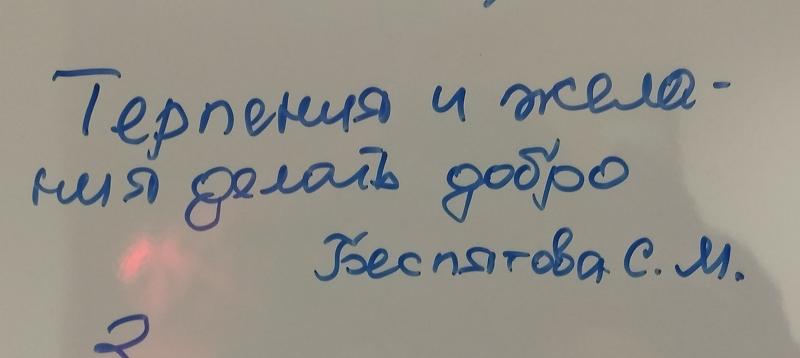 Терпения и жела-
ния делать добро
Беспятова С. М.